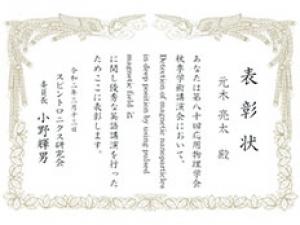 表彰状
元木 亮太 殿
あなたは第八十回応用物理学会
秋季学術講演会において、
Detection of magnetic nanoparticles
in deep position by using pulsed
magnetic field 
に関し優秀な英語講演を行った
ためここに表彰します。
令和二年三月十三日
スピントロニクス研究会
委員長 小野輝男